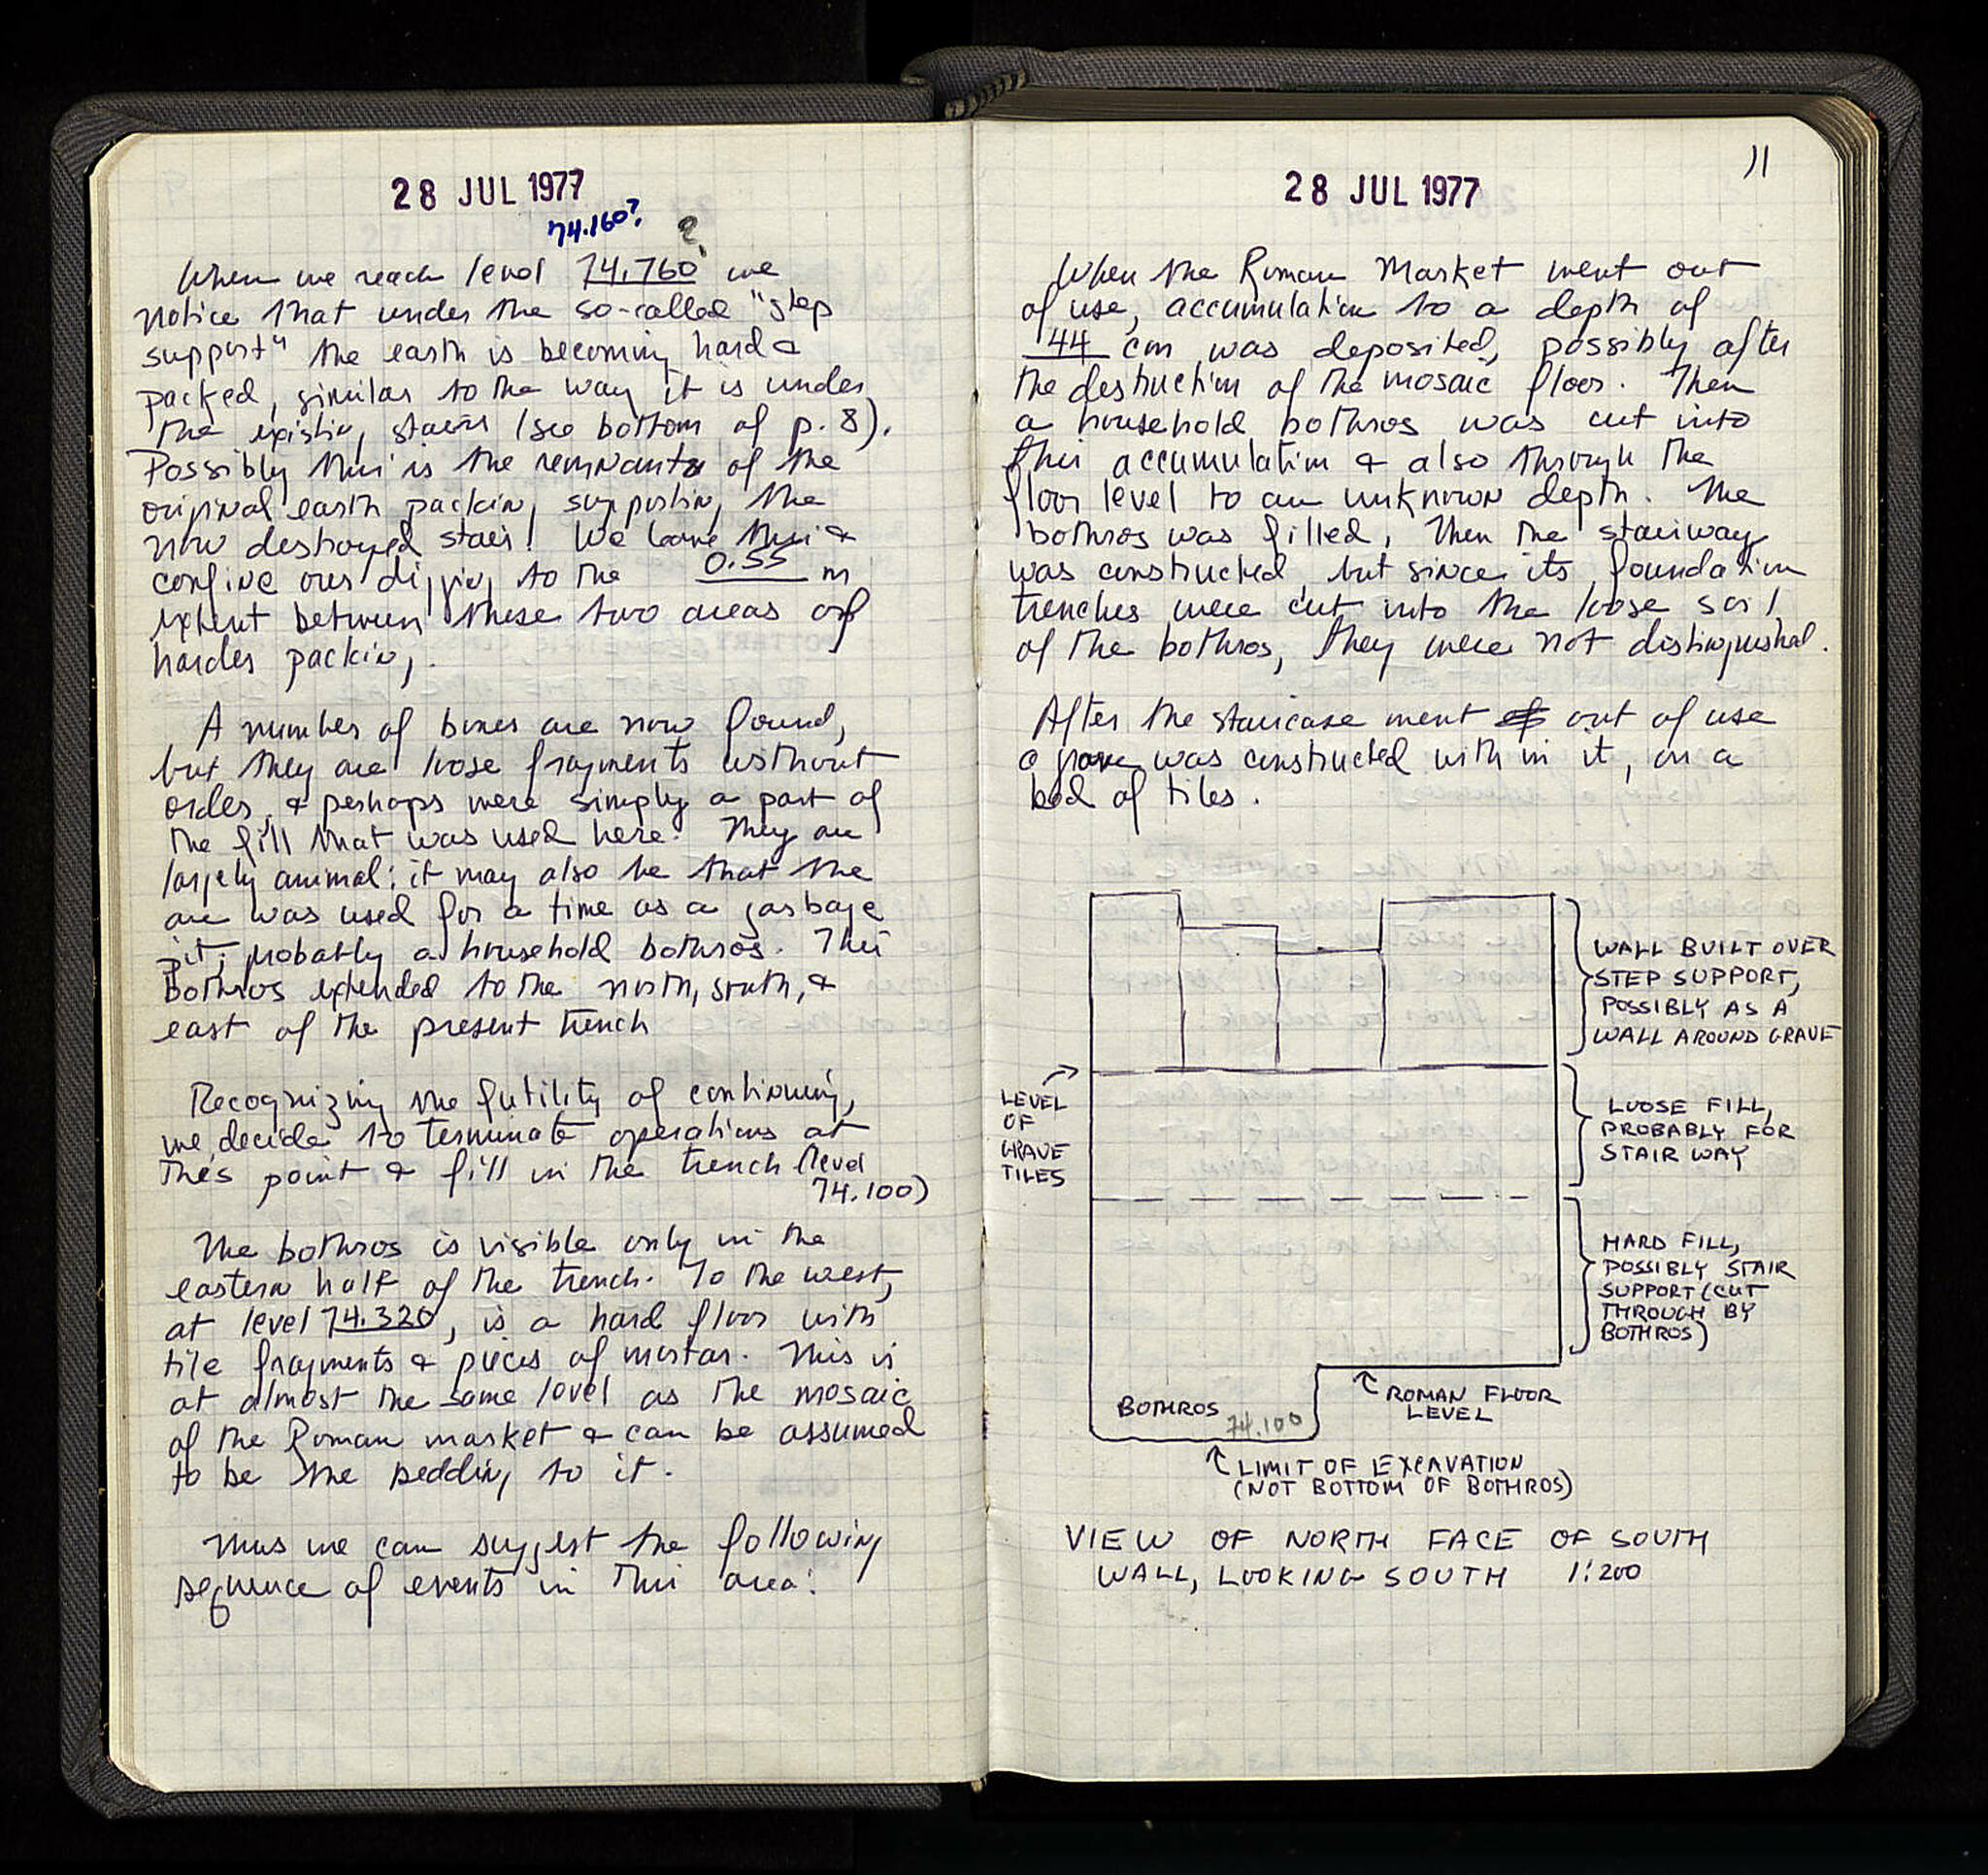 28 JUL 1977
74.160?
?
When we reach level 74.760 we
notice that under the so-called "step
support" the earth is becoming hard &
packed, similar to the way it is under
the existing stairs (see bottom of p. 8).
Possibly this is the remnants of the
original earth packing supporting the
now destroyed stair! We leave this &
confine our digging to the 0.55 m
extent between these two areas of
harder packing.
A number of bones are now found,
but they are loose fragments without
order, & perhaps were simply a part of
the fill that was used here. They are
largely animal: it may also be that the
are was used for a time as a garbage
pit, probably a household bothros. This
bothros extended to the north, south, &
east of the present trench
Recognizing the futility of continuing,
we decide to terminate operations at
this point & fill in the trench (level
74.100)
The bothros is visible only in the
eastern half of the trench. To the west,
at level 74.320, is a hard floor with
tile fragments & pieces of mortar. This is
at almost the same level as the mosaic
of the Roman market & can be assumed
to be the bedding to it.
Thus we can suggest the following
sequence of events in this area:
28 JUL 1977
11
When the Roman Market went out
of use, accumulation to a depth of
44 cm was deposited, possibly after
the destruction of the mosaic floor. Then
a household bothros was cut into
this accumulation & also through the
floor level to an unknown depth. The
bothros was filled, then the stairway
was constructed, but since its foundation
trenches were cut into the loose soil
of the bothros, they were not distinguished.
After the staircase went of out of use
a grave was constructed with in it, on a
bed of tiles.
WALL BUILT OVER
STEP SUPPORT,
POSSIBLY AS A
WALL AROUND GRAVE
LEVEL
OF
GRAVE
TILES
LOOSE FILL,
PROBABLY FOR
STAIR WAY
HARD FILL,
POSSIBLY STAIR
SUPPORT (CUT
THROUGH BY
BOTHROS)
BOTHROS
74.100
ROMAN FLOOR
LEVEL
LIMIT OF EXCAVATION
(NOT BOTTOM OF BOTHROS)
VIEW OF NORTH FACE OF SOUTH
WALL, LOOKING SOUTH 1:200